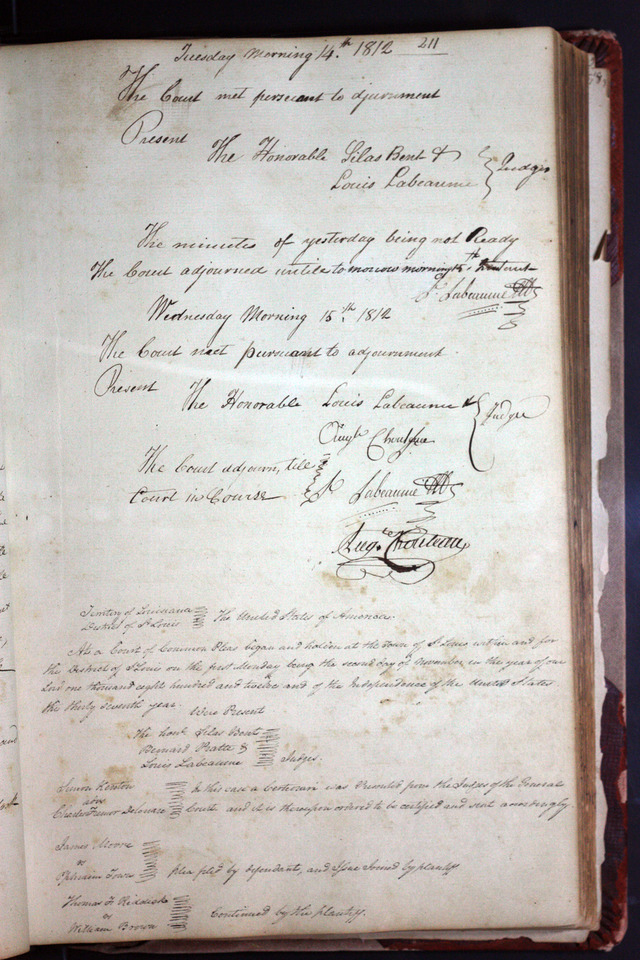 Tuesday Morning 14.th 1812 211
The Court met persuant to adjurnment
Present
The Honorable Silas Bent &
Louis Labeaume } Judges
The minutes of yesterday being not Ready
The Court adjourned untile to morrow morning 15.th
L Labeaume
Wednesday Morning 15.th 1812
The Court met pursuant to adjournment
Present
The Honorable Louis Labeaume & } Judges
Augte Chouteau
The Court adjourn, tile
Court in Course
L Labeaume
Augte Chouteau
Territory of Louisiana
District of St Louis
The United States of America.
At a Court of Common Pleas began and holden at the Town of St Louis within and for
the District of St Louis on the first Monday being the second day of November in the year of our
Lord one thousand eight hundred and twelve and of the Independence of the United States
the thirty seventh year.
Were Present
The honl Silas Bent
Bernard Pratte &
Louis Labeaume
Judges.
Simon Kenton
adm
Charles Fremor Delaurier
In this case a Certiorari was presented from the Judges of the General
Court and it is thereupon ordered to be certified and sent accordingly
James Moore
vs
Ephraim Town
plea filed by defendant, and Issue Joined by plantff
Thomas F Reddick
vs
William Brown
Continued by the plantiff.